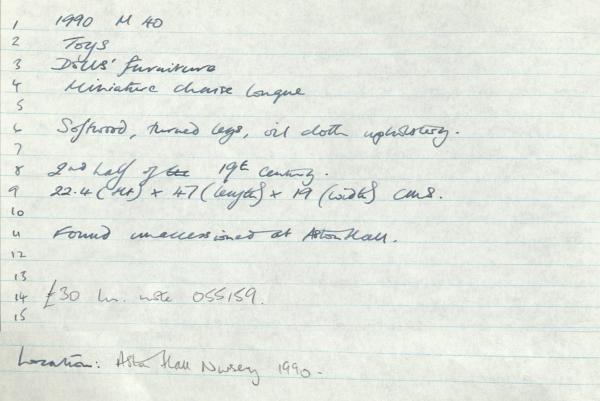 1 1990 M 40
2 Toys
3 Dolls' furniture
4 Miniature chaise longue
5
6 Softwood, turned legs, oil cloth upholstery.
7
8 2nd half of the 19th century.
9 22.4 (ht) x 47 (length) x 19 (width) cms.
10
11 Found unaccessioned at Aston Hall.
12
13
14 £30 note 055159.
15
Location: Aston Hall Nursery 1990.